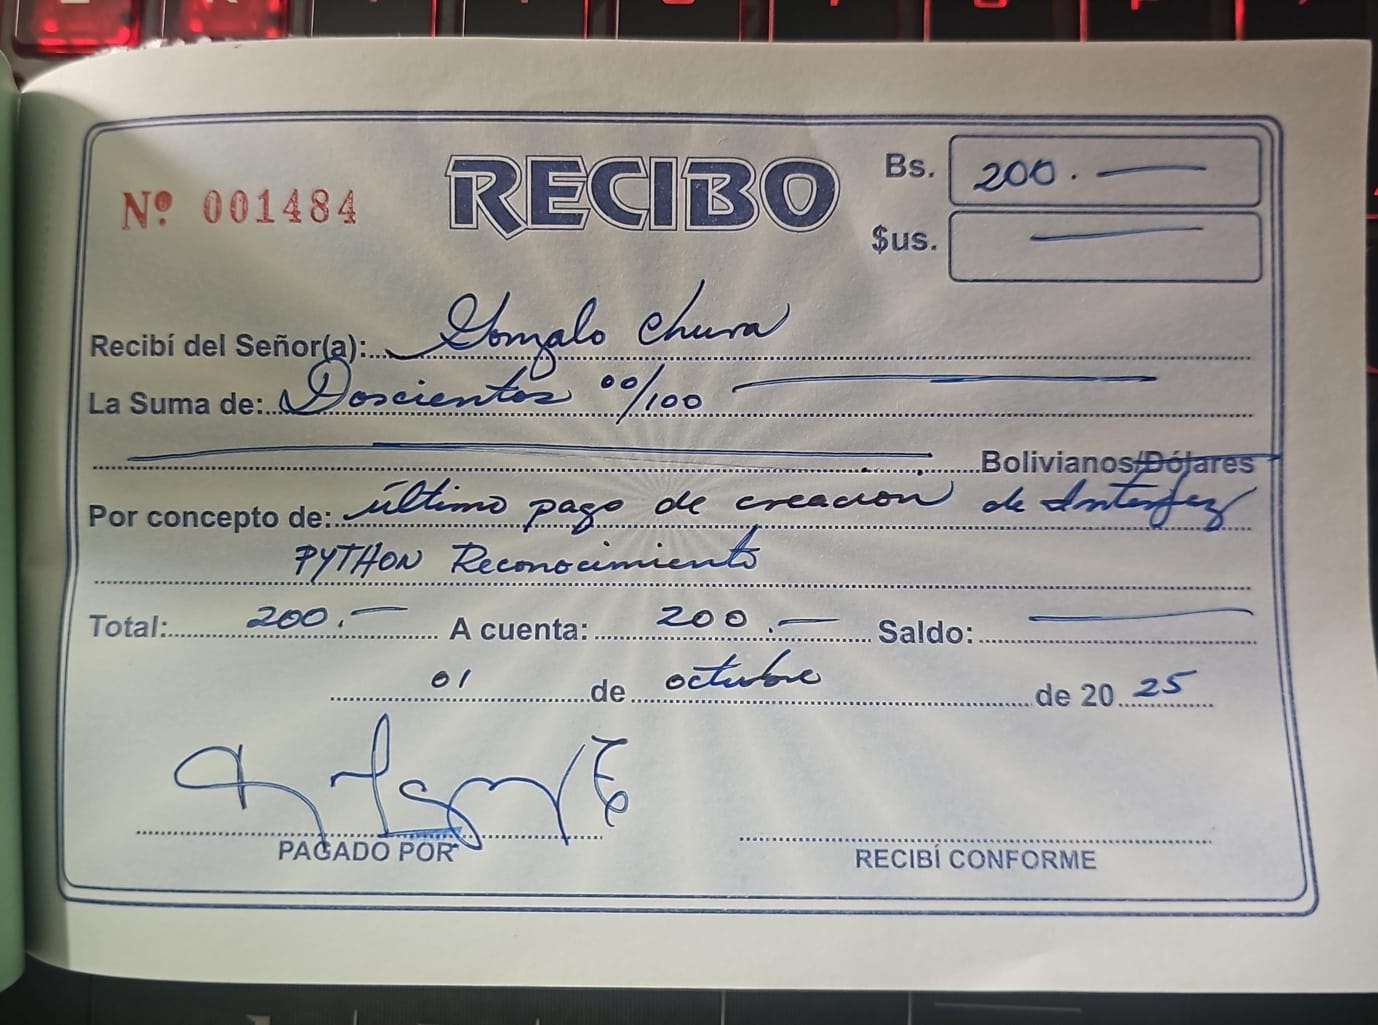 Nº 001484 RECIBO Bs. 200.—
$us. —
Recibí del Señor(a): Gonzalo Chura
La Suma de: Doscientos 00/100
Bolivianos/Dólares
Por concepto de: último pago de creación de Interfaz
PYTHON Reconocimiento
Total: 200.— A cuenta: 200.— Saldo: —
01 de octubre de 2025
PAGADO POR RECIBÍ CONFORME